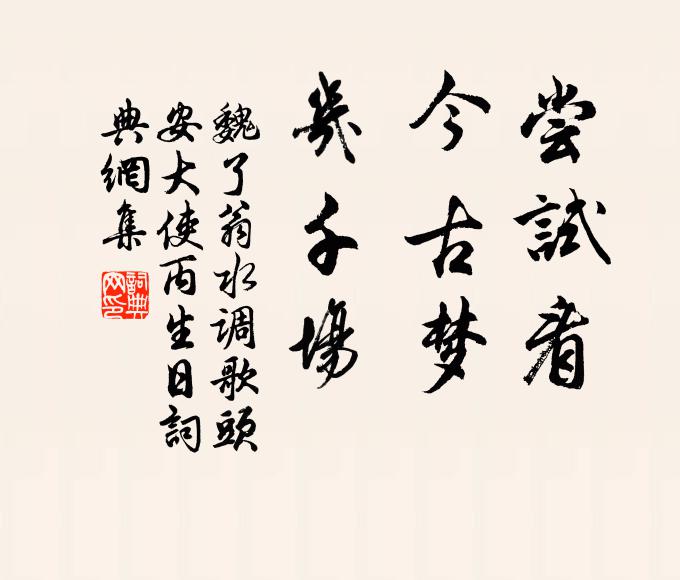 尝試看
今古梦
幾千場
魏了翁水调歌頭
安大使丙生日詞
典網集
詞典网印